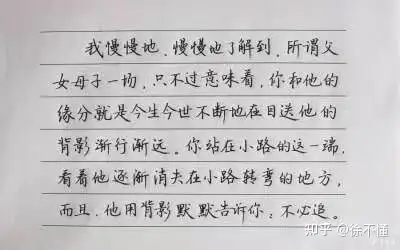 我慢慢地、慢慢地了解到,所谓父
女母子一场,只不过意味着,你和他的
缘分就是今生今世不断地在目送他的
背影渐行渐远。你站在小路的这一端,
看着他逐渐消失在小路转弯的地方,
而且,他用背影默默告诉你:不必追。
知乎 @徐不懂